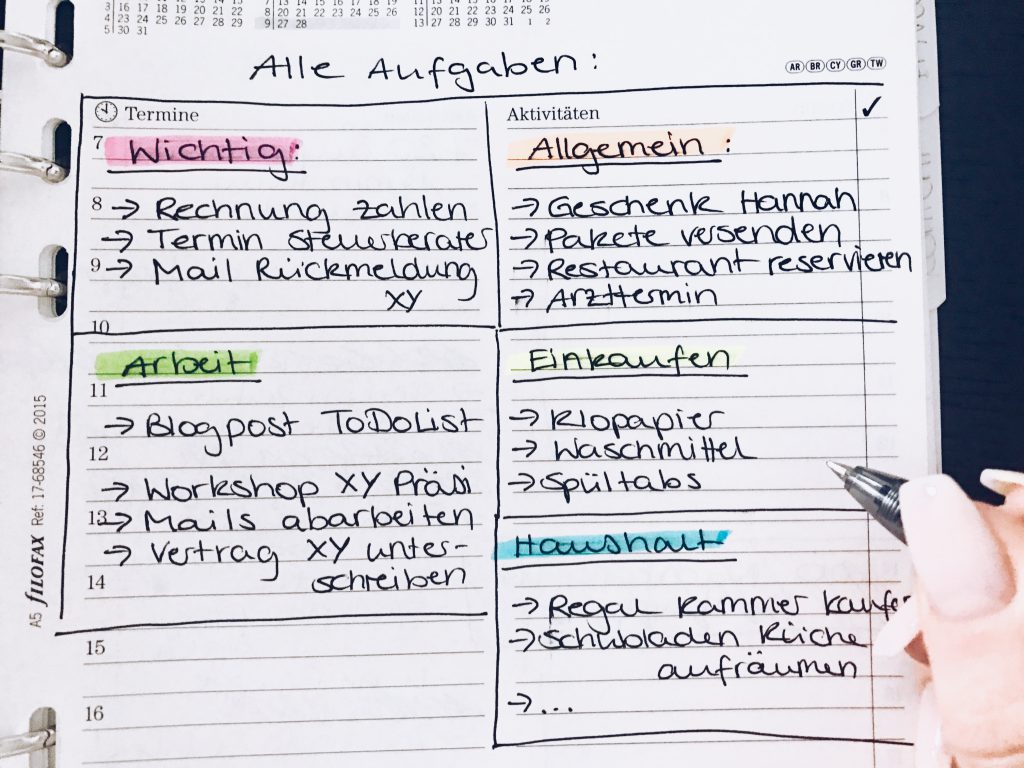 3 16 17 18 19 20 21 22
4 23 24 25 26 27 28 29
5 30 31
8 20 21 22 23 24 25 26
9 27 28
12 20 21 22 23 24 25 26
13 27 28 29 30 31 1 2
Alle Aufgaben:
AR BR CY GR TW
Termine
7 Wichtig:
8 → Rechnung zahlen
→ Termin Steuerberater
9 → Mail Rückmeldung
XY
10
Arbeit
11
→ Blogpost ToDoList
12
→ Workshop XY Präsi
13 → Mails abarbeiten
→ Vertrag XY unter-
14 schreiben
15
16
Aktivitäten ✓
Allgemein:
→ Geschenk Hannah
→ Pakete versenden
→ Restaurant reservieren
→ Arzttermin
Einkaufen
→ Klopapier
→ Waschmittel
→ Spültabs
Haushalt
→ Regal Kammer kaufen
→ Schubladen Küche
aufräumen
→ ...
A5 FILOFAX Ref: 17-68546 © 2015